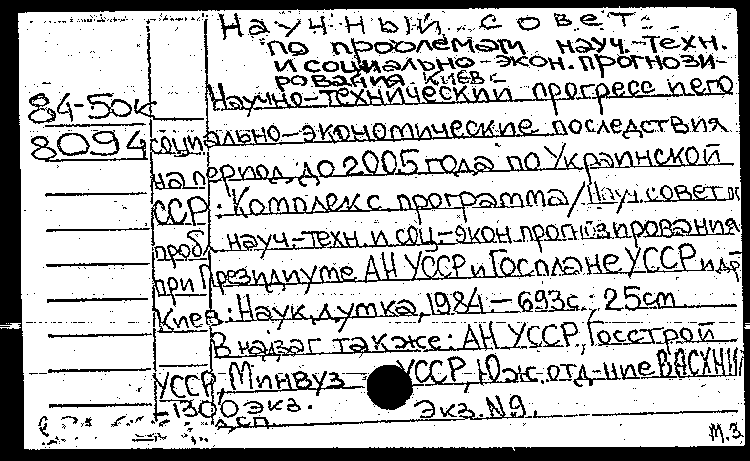 Научный совет
по проблемам науч.-техн.
и социально-экон. прогнози-
рования. Киев.
84-50к
Научно-технический прогресс и его
8094
социально-экономические последствия
на период до 2005 года по Украинской
ССР: Комплекс. программа / Науч. совет по
пробл. науч.-техн. и соц.-экон. прогнозирования
при Президиуме АН УССР и Госплане УССР и др.
Киев: Наук. думка, 1984. - 693с.; 25cm
В надзаг также: АН УССР, Госстрой
УССР, Минвуз УССР, Юж. отд-ние ВАСХНИЛ
-1300 экз. Экз. N9.
ДСП.
М.З.